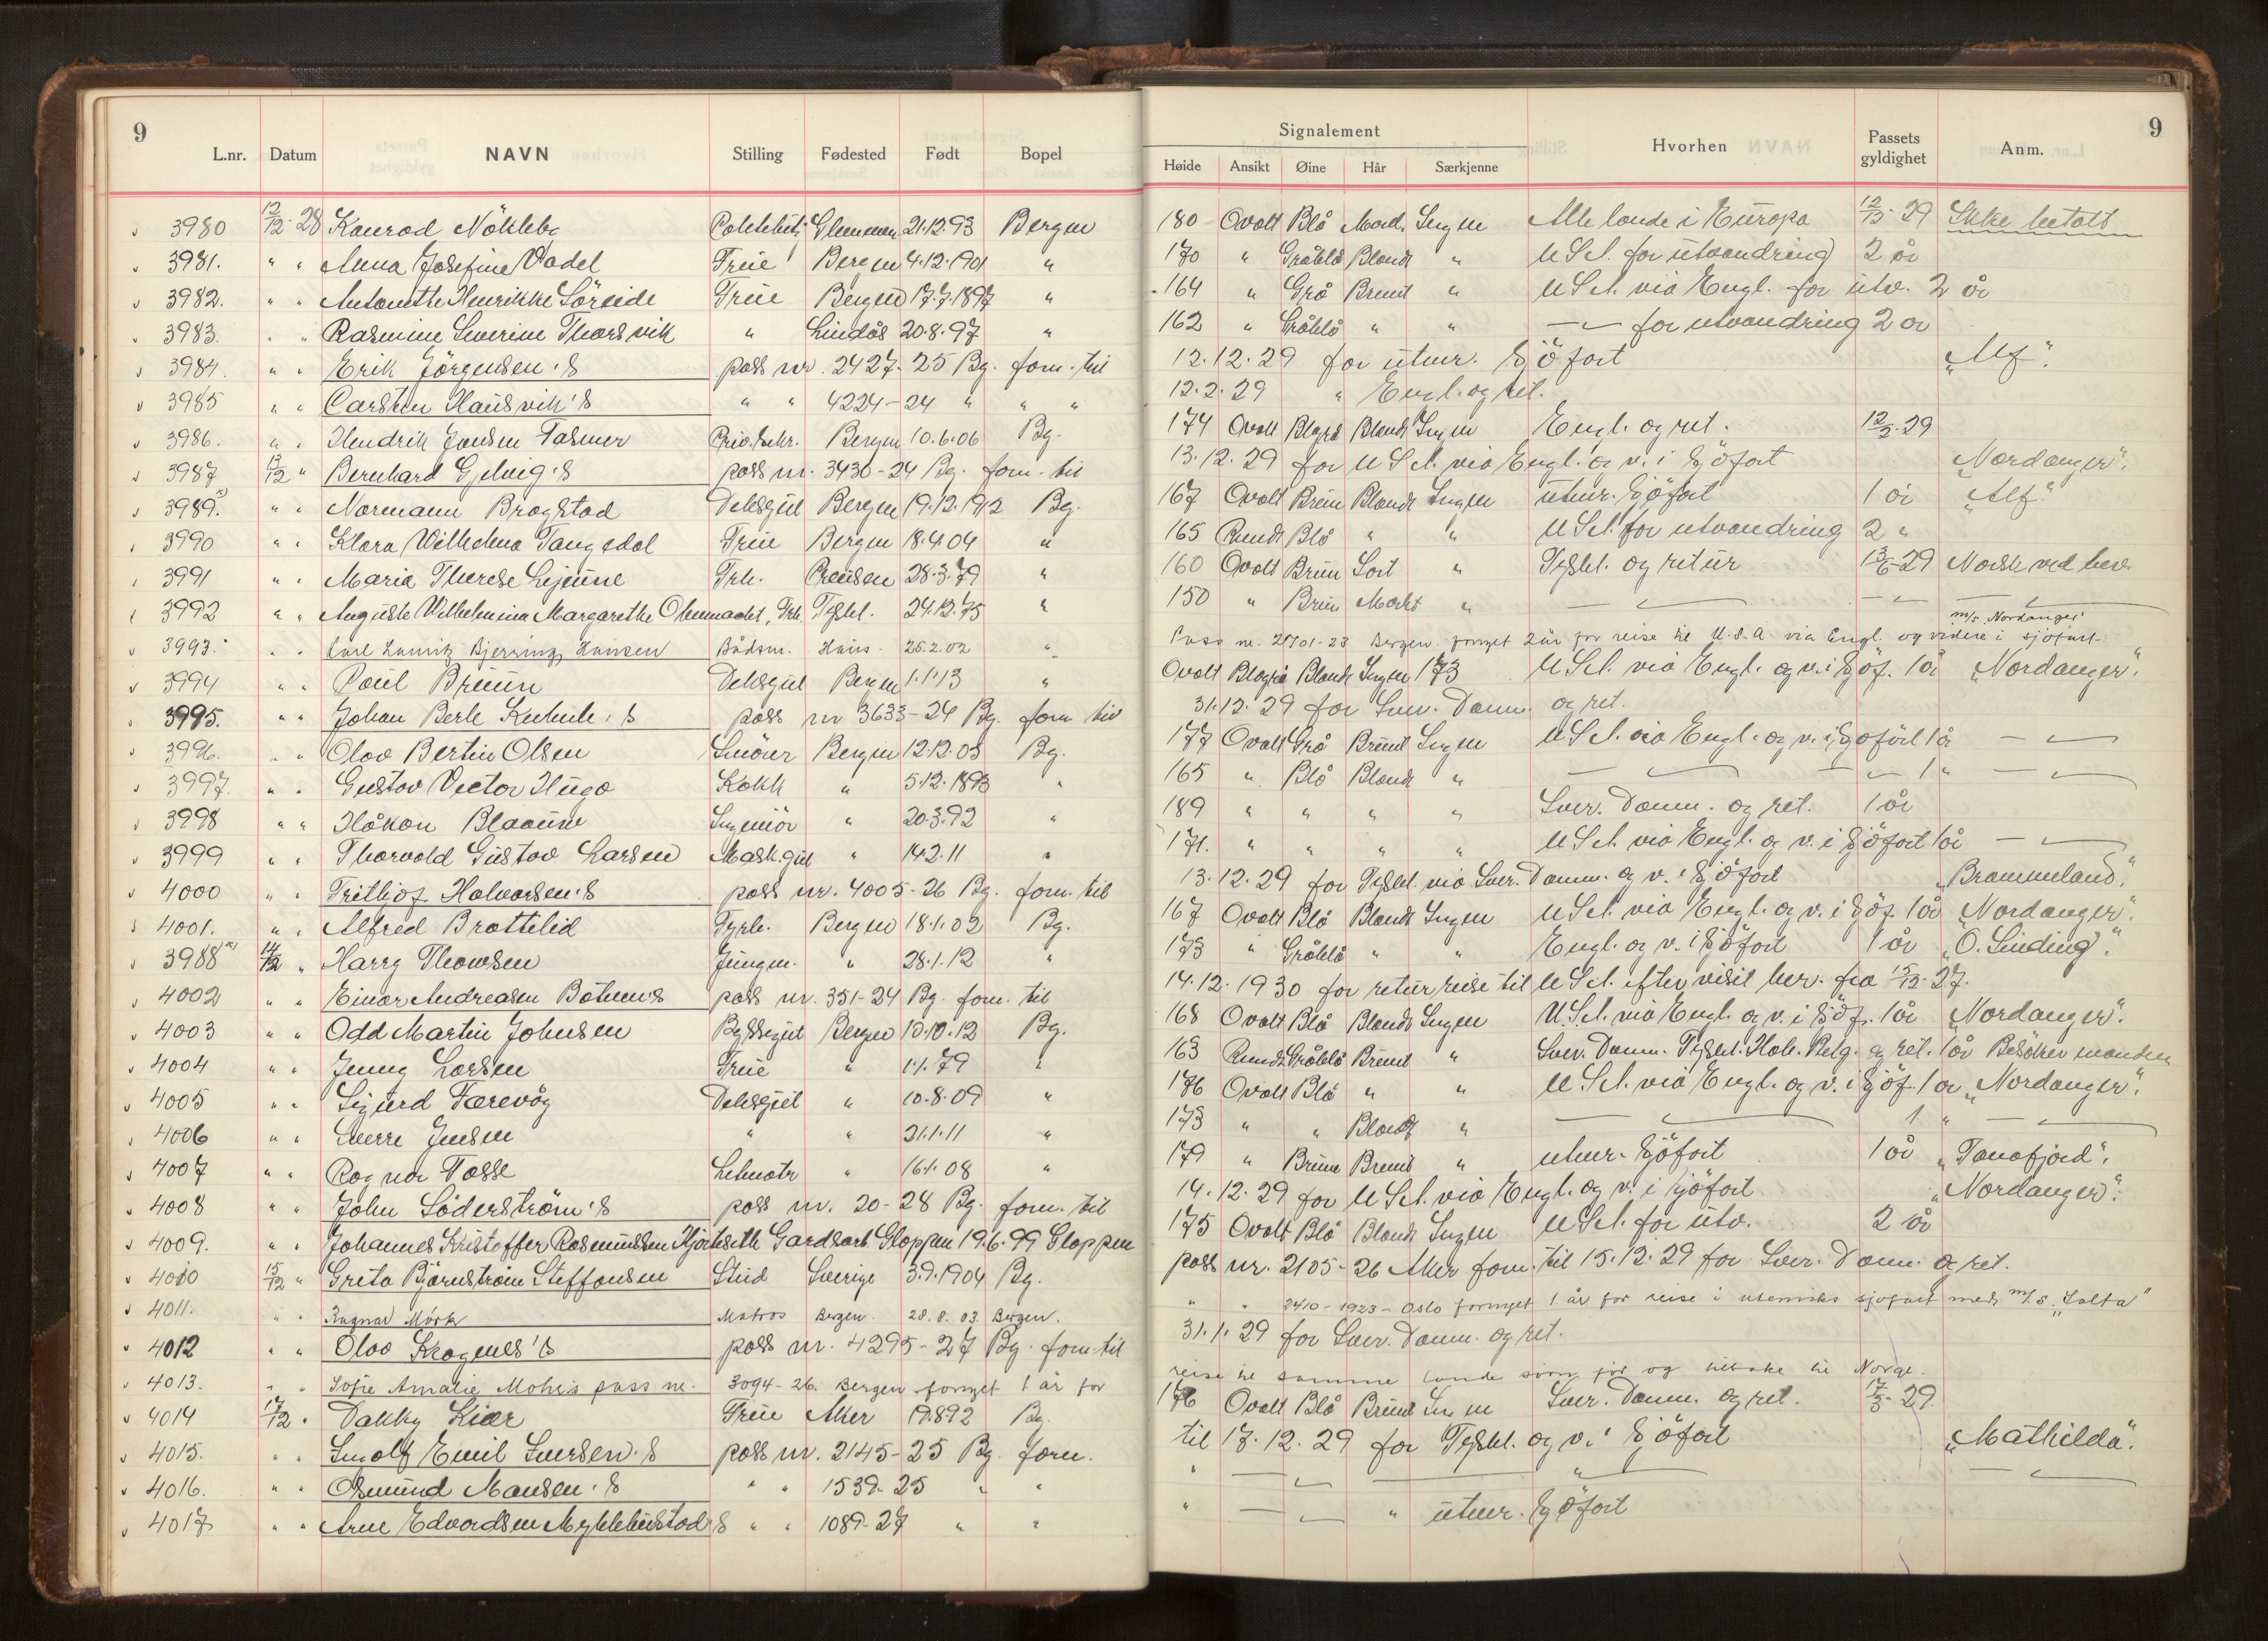 9
L.nr. Datum NAVN Stilling Fødested Født Bopel
3980 12/12-28 Konrad Nökleby 21.12.93 Bergen
3981. " " Anna Josefine Vadel Frue Bergen 4.12.1901 "
3982. " " Antonette Henrikke Söreide Frue Bergen 17.7.1897 "
3983. " " Rasmine Severine Thorsvik " Lindås 20.8.97 "
3984. " " Erik Jörgensen's pass nr. 2427-25 Bg. forn. til
3985 " " Carsten Hausvik's " " 4224-24 " " "
3986. " " Hendrik Jansen Fasmer Priv.sekr. Bergen 10.6.06 Bg.
3987 13/12 " Bernhard Gjelvig's pass nr. 3430-24 Bg. forn. til
3989.x) " " Normann Brogstad Deksgut Bergen 19.12.1912 Bg.
3990 " " Klara Wilhelma Tangedal Frue Bergen 18.4.04 "
3991 " " Maria Therese Lejeune Frk. Preusen 28.3.79 "
3992 " " Auguste Wilhelmina Margarethe Ohnmacht, Frk. Tyskl. 24.12.75 "
3993. " " Karl Lauritz Bjerring Hansen Bådsm. Haus 25.2.02 "
3994 " " Poul Bruun Deksgut Bergen 1.1.13 "
3995. " " Johan Berle pass nr 3633-24 Bg. forn til
3996. " " Olav Bertin Olsen Smörer Bergen 12.12.03 Bg.
3997. " " Gustav Victor Hugo Kokk " 5.12.1893 "
3998 " " Håkon Blaauw Ingeniör " 20.3.92 "
3999 " " Thorvald Gustav Larsen Mask.gut " 14.2.11 "
4000 " " Frithjof Halvorsen's pass nr. 4005-26 Bg. forn. til
4001. " " Alfred Brattelid Fyrb. Bergen 18.1.02 Bg.
3988 x) 14/12 " Harry Thowsen Jungm. " 28.1.12 "
4002 " " Einar Andreasen Böhms pass nr. 351-24 Bg. forn. til
4003 " " Odd Martin Johnsen Byssegut Bergen 10.10.12 Bg.
4004 " " Jenny Larsen Frue " 1.1.79 "
4005 " " Sigurd Færevåg Deksgut " 10.8.09 "
4006 " " Sverre Jensen " " 21.1.11 "
4007 " " Ragnar Fosse Letmatr " 16.1.08 "
4008 " " John Söderström's pass nr. 20-28 Bg. forn. til
4009. " " Johannes Kristoffer Rasmussen Hjorteseth Gardsarb. Gloppen 19.6.99 Gloppen
4010 15/12 " Greta Bjørnström Steffensen Stud Sverige 3.9.1904 Bg.
4011. " " Ragnar Mörk Matros Bergen 28.8.03 Bergen.
4012 " " Olav Krognes's pass nr. 4295-27 Bg. forn. til
4013. " " Sofie Amalie Mohr's pass nr. 3094-26. Bergen fornyet 1 år for
4014 17/12 " Dakky Kiær Frue Aker 19.8.92 Bg.
4015. " " Ingolf Emil Iversen's pass nr. 2145-25 Bg. forn.
4016. " " Osmund Monsen's " " 1539-25 " "
4017 " " Arne Edvardsen Myklebustad's " " 1089-27 " "
9
Signalement
Høide Ansikt Øine Hår Særkjenne Hvorhen Passets gyldighet Anm.
180 Ovalt Blå Mørk. Ingen Alle lande i Europa 12/12-29 Ikke betalt
170 " Gråblå Blond " U.S.A. for utvandring 2 år
164 " Grå Brunt " U.S.A. via Engl. for utv. 2 år
162 " Gråblå " " —"— for utvandring 2 år
12.12.29 for utenr. Sjöfart "Alf".
12.2.29 " Engl. og ret.
174 Ovalt Blågrå Blondt Ingen Engl. og ret. 12/2-29
13.12.29 for U.S.A. via Engl. og v. i Sjöfart "Nordanger".
167 Ovalt Brun Blondt Ingen utenr. Sjöfart 1 år "Alf"
165 Rundt Blå " " U.S.A. for utvandring 2 "
160 Ovalt Brun Sort " Tyskl. og retur 13/6-29 Norsk ved bev.
150 " Brun Mørkt " —"— —"— —"—
Pass nr. 2701-23 Bergen fornyet 2 år for reise til U.S.A. via Engl. og videre i sjöfart. m/s "Nordanger"
Ovalt Blågrå Blondt Ingen 173 U.S.A. via Engl. og v. i Sjöf. 1 år "Nordanger".
31.12.29 for Sver. Danm. og ret.
177 Ovalt Grå Brunt Ingen U.S.A. via Engl. og v. i Sjöfart 1 år —"—
165 " Blå Blondt " —"— —"— 1 " —"—
189 " " " " Sver. Danm. og ret. 1 år
171. " " " " U.S.A. via Engl. og v. i Sjöfart 1 år —"—
13.12.29 for Tyskl. via Sver. Danm. og v. i Sjöfart "Brammeland".
167 Ovalt Blå Blondt Ingen U.S.A. via Engl. og v. i Sjöf. 1 år "Nordanger".
173 " Gråblå " " Engl. og v. i Sjöfart 1 år "O. Sinding".
14.12.1930 for retur reise til U.S.A. efter visit her. fra 15/12-27.
168 Ovalt Blå Blondt Ingen U.S.A. via Engl. og v. i Sjöf. 1 år "Nordanger".
163 Rundt Gråblå Brunt " Sver. Danm. Tyskl. Hol. Belg. og ret. 1 år Besöker manden
176 Ovalt Blå " " U.S.A. via Engl. og v. i Sjöf. 1 år "Nordanger".
173 " " Blondt " —"— 1 " —"—
179 " Brune Brunt " utenr. Sjöfart 1 år "Tanafjord".
14.12.29 for U.S.A. via Engl. og v. i Sjöfart "Nordanger".
175 Ovalt Blå Blondt Ingen U.S.A. for utv. 2 år
pass nr. 2105-26 Aker forn. til 15.12.29 for Sver. Danm. og ret.
" " 2410-1923-Oslo fornyet 1 år for reise i utenriks sjøfart med m/s. "Salta"
31.1.29 for Sver. Danm. og ret.
reise til samme lande som før og tilbake til Norge.
176 Ovalt Blå Brunt Ingen Sver. Danm. og ret. 17/3-29.
til 17.12.29 for Tyskl. og v. i Sjöfart "Mathilda".
" —"— —"— —"—
" —"— " utenr. Sjöfart